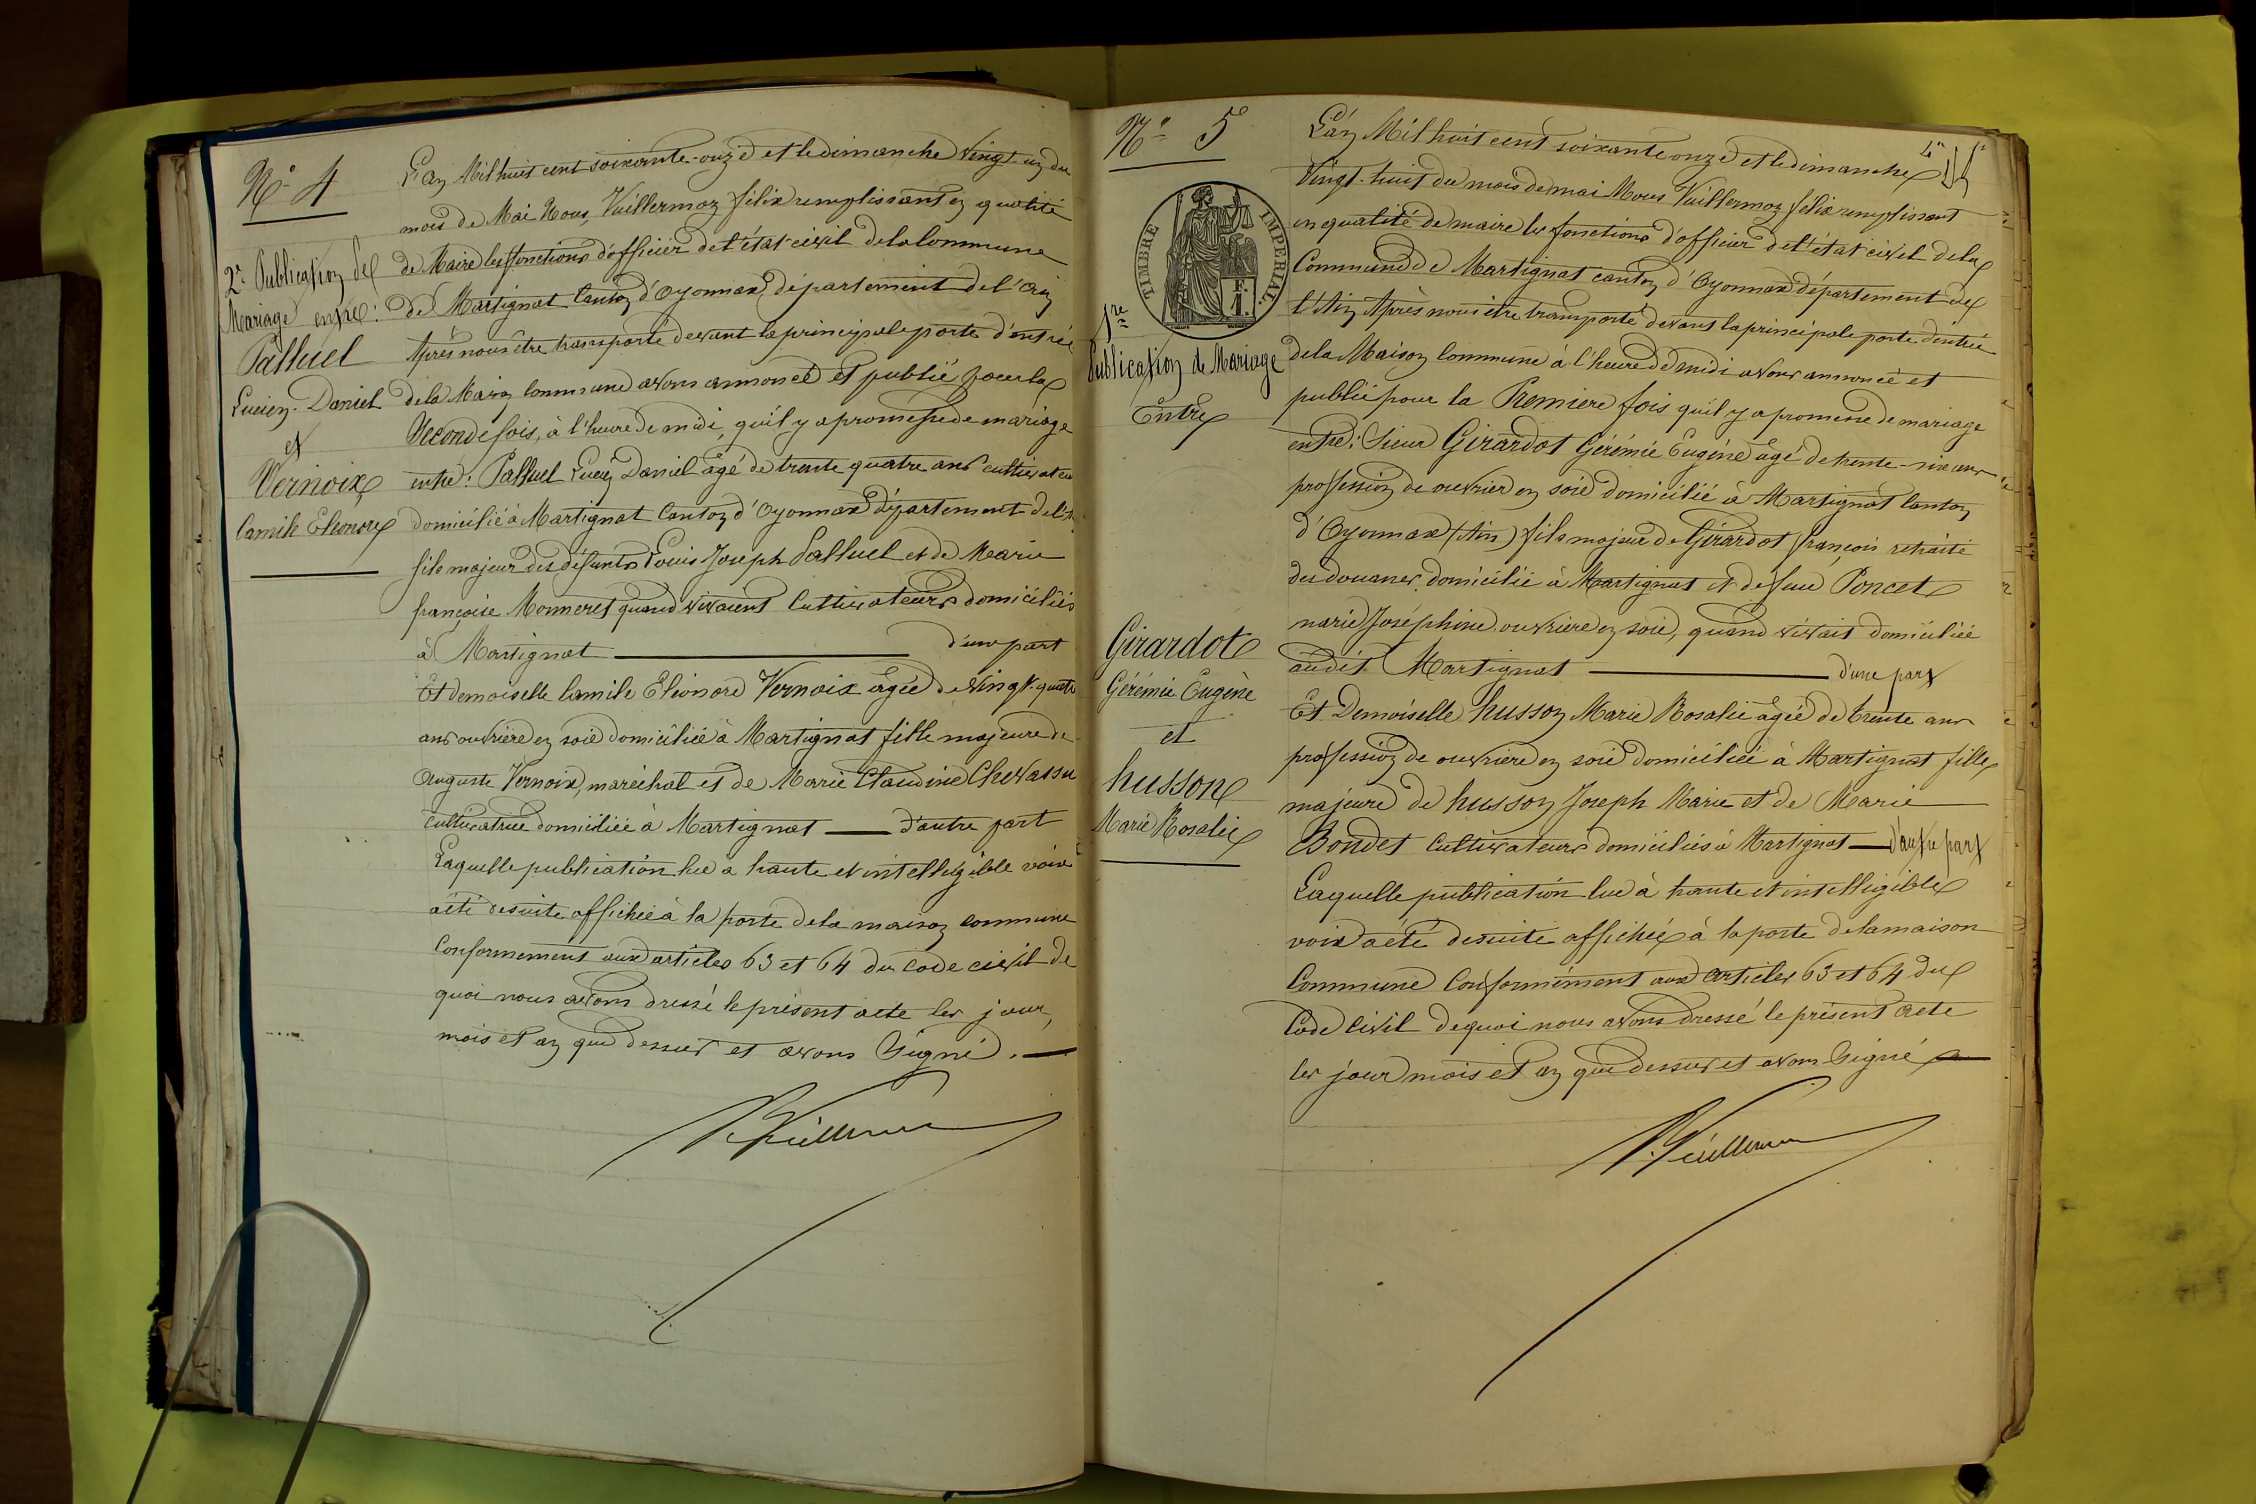 N° 4
2e Publication de
Mariage entre :
Palluel
Lucien Daniel
et
Vernoix
Camile Eléonore
L'an Mil huit cent soixante-onze et le dimanche vingt-un du
mois de Mai Nous, Vuillermoz félix remplissant en qualité
de Maire les fonctions d'officier de l'état civil de la Commune
de Martignat Canton d'Oyonnax département de l'Ain
Après nous être transporté devant la principale porte d'entrée
de la Maison Commune avons annoncé et publié pour la
Seconde fois, à l'heure de midi, qu'il y a promesse de mariage
entre : Palluel Lucien Daniel âgé de trente quatre ans cultivateur
domicilié à Martignat Canton d'Oyonnax département de l'Ain
fils majeur des défunts Louis Joseph Palluel et de Marie
françoise Monneret quand vivaient Cultivateurs domiciliés
à Martignat d'une part
Et demoiselle Camile Eléonore Vernoix âgée de vingt-quatre
ans ouvrière en soie domiciliée à Martignat fille majeure de
Auguste Vernoix, maréchal et de Marie Claudine Chevassu
Cultivatrice domiciliée à Martignat d'autre part
Laquelle publication lue à haute et intelligible voix
a été de suite affichée à la porte de la maison commune
Conformément aux articles 63 et 64 du code civil de
quoi nous avons dressé le présent acte les jour,
mois et an que dessus et avons Signé.
N° 5
TIMBRE IMPERIAL.
F.
1.
1re
Publication de Mariage
Entre
Girardot
Gérémie Eugène
et
husson
Marie Rosalie
L'an Mil huit cent soixante onze et le dimanche
Vingt-huit du mois de mai Nous Vuillermoz félix remplissant
en qualité de maire les fonctions d'officier de l'état civil de la
Commune de Martignat canton d'Oyonnax département de
l'Ain Après nous être transporté devant la principale porte d'entrée
de la Maison Commune à l'heure de midi avons annoncé et
publié pour la Premiere fois qu'il y a promesse de mariage
entre : Sieur Girardot Gérémie Eugène âgé de trente-six ans
profession de ouvrier en soie domicilié à Martignat Canton
d'Oyonnax (Ain) fils majeur de Girardot françois retraité
des douanes domicilié à Martignat et de feue Poncet
marie Joséphine ouvrière en soie, quand vivait domiciliée
audit Martignat d'une part
Et Demoiselle husson Marie Rosalie âgée de trente ans
profession de ouvrière en soie domiciliée à Martignat fille
majeure de husson Joseph Marie et de Marie
Bondet Cultivateurs domiciliés à Martignat d'autre part
Laquelle publication lue à haute et intelligible
voix a été de suite affichée à la porte de la maison
Commune Conformément aux articles 63 et 64 du
Code Civil de quoi nous avons dressé le présent acte
les jour mois et an que dessus et avons Signé